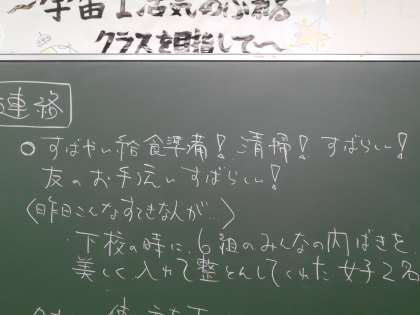 ～宇宙1活気のあふれる
クラスを目指して～
連絡
○すばやい給食準備！清掃！すばらしい！
友のお手伝いすばらしい！
〈昨日こんなすてきな人が…〉
・下校の時に、6組のみんなの内ばきを
美しく入れて整とんしてくれた女子2名